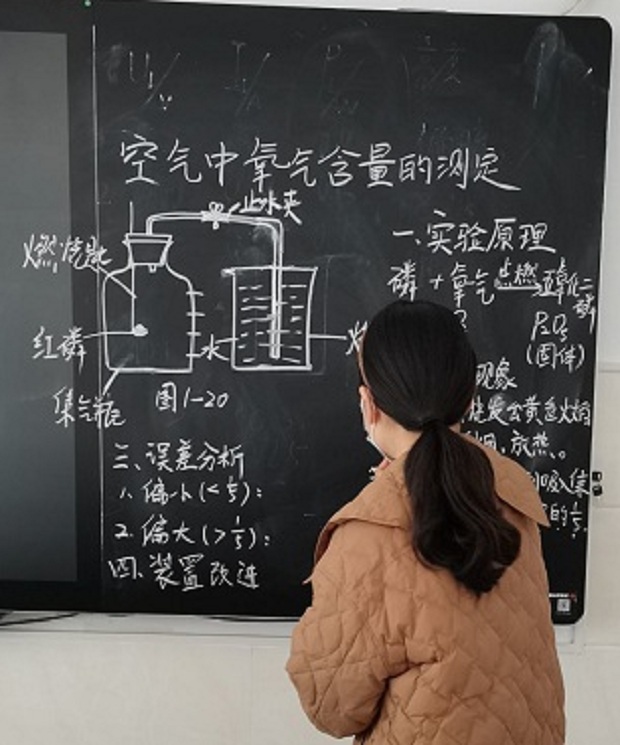 空气中氧气含量的测定
止水夹
燃烧匙
红磷
集气瓶
水
图1-20
一、实验原理
磷 + 氧气 点燃 五氧化二磷
P₂O₅
(固体)
现象
黄色火焰
放热。
吸入集
的1/5
三、误差分析
1. 偏小(<1/5):
2. 偏大(>1/5):
四、装置改进